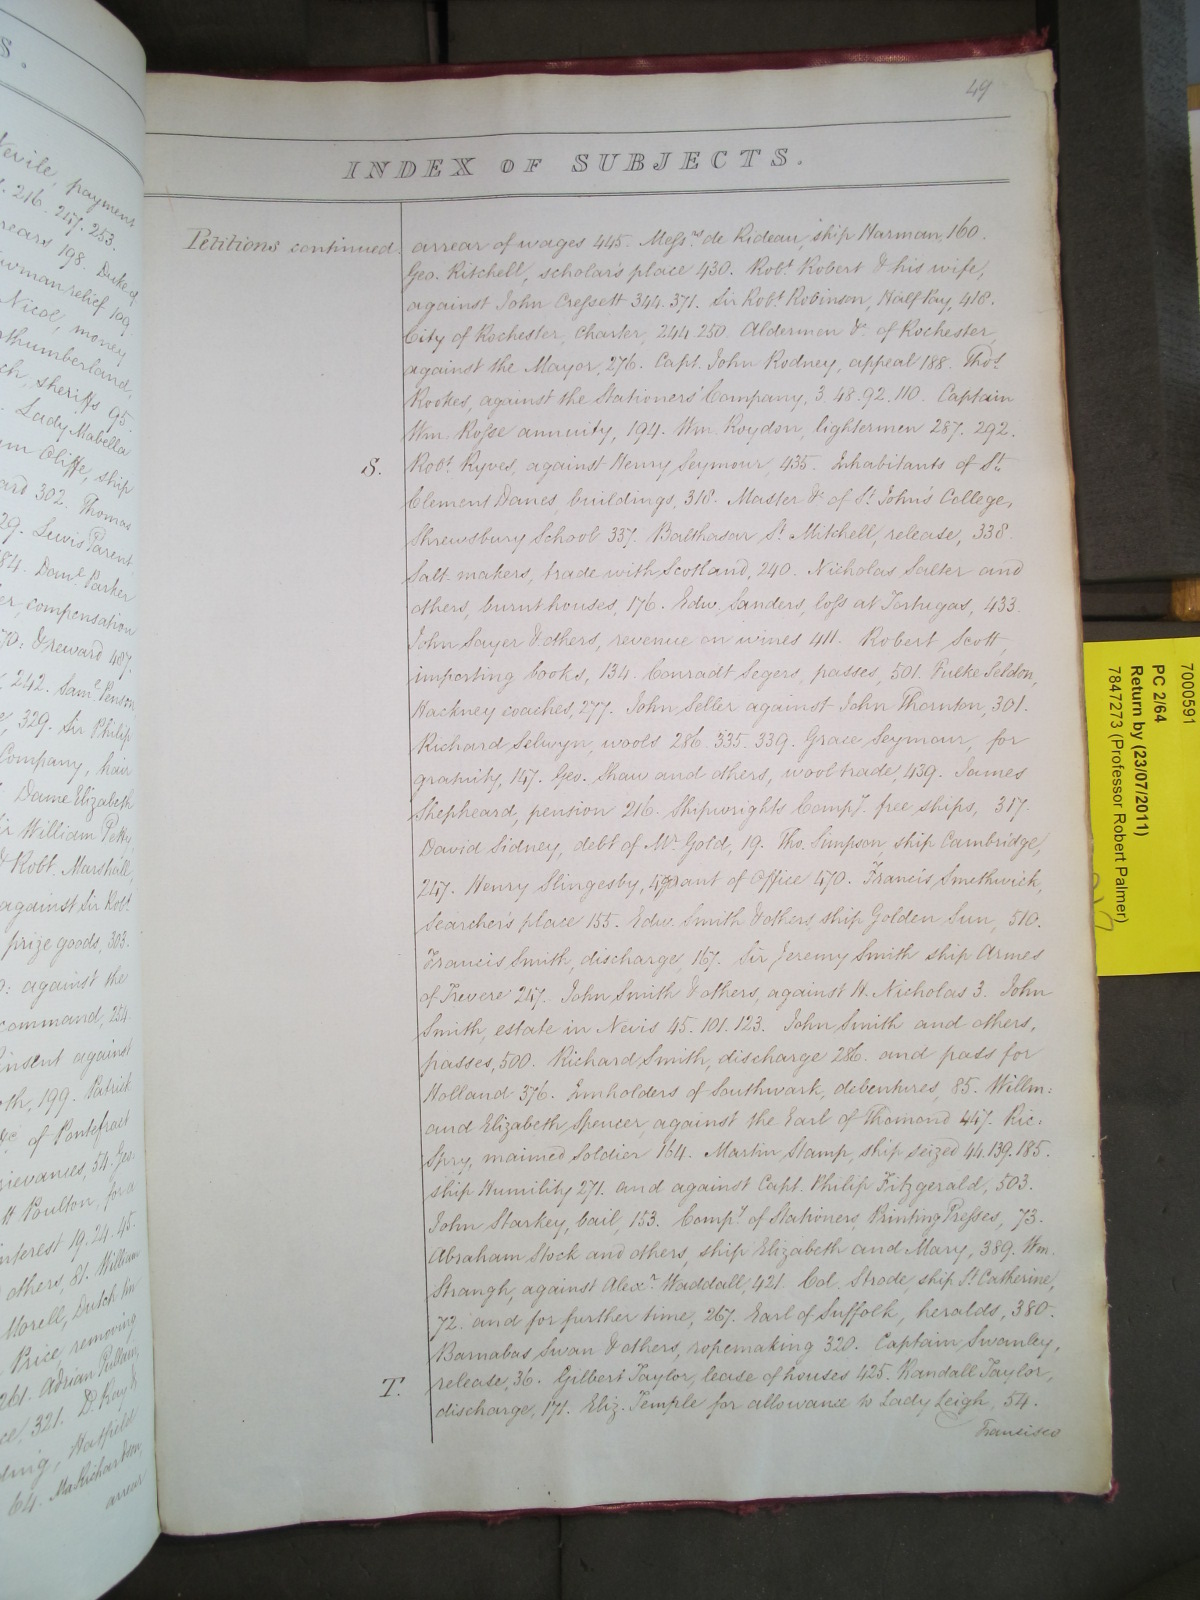 S.
Nevile, payment
216. 247. 253.
198. Duke of
relief 109.
Nicol, money
sheriffs 95.
Lady Mabella
Cliffe, ship
302. Thomas
29. Lewis Parent
Dan.l Parker
compensation
& reward 487.
242. Sam.l Penson
329. Sir Philip
Company, hair
Dame Elizabeth
William Petty,
& Robt. Marshall,
against Sir Robt.
prize goods, 303.
against the
command, 254.
against
199. Patrick
&c of Pontefract
54. Geo.
Poulton, for a
interest 19. 24. 45.
others, 81. William
Morell, Dutch
Price, removing
261. Adrian Pullam,
321. D. Ray &
Hatfield
64. Richardson,
arrear
49
INDEX OF SUBJECTS.
Petitions continued. arrear of wages 445. Meſs.rs de Rideau, ship Harman, 160.
Geo. Ritchell, scholar's place 430. Rob.t Robert & his wife,
against John Creſsett 344. 371. Sir Rob.t Robinson, Half Pay, 418.
City of Rochester, Charter, 244. 250. Aldermen &c. of Rochester,
against the Mayor, 276. Capt. John Rodney, appeal 188. Tho.s
Rookes, against the Stationers' Company, 3. 48. 92. 110. Captain
Wm. Roſse annuity, 194. Wm. Roydon, lightermen 287. 292.
S. Rob.t Ryves, against Henry Seymour, 435. Inhabitants of St.
Clement Danes, buildings, 318. Master &c of St. John's College,
Shrewsbury School 337. Balthasar St. Mitchell, release, 338.
Salt makers, trade with Scotland, 240. Nicholas Salter and
others, burnt houses, 176. Edw. Sanders, loſs at Tortugas, 433.
John Sayer & others, revenue on wines 411. Robert Scott,
importing books, 134. Conradt Segers, passes, 501. Fulke Seldon,
Hackney coaches, 277. John Seller against John Thornton, 301.
Richard Selwyn, wools 286. 335. 339. Grace Seymour, for
gratuity, 147. Geo. Shaw and others, wool trade, 439. James
Shepheard, pension 216. Shipwrights Comp.y free ships, 317.
David Sidney, debt of Mr. Gold, 19. Tho. Simpson, ship Cambridge,
247. Henry Slingesby, of Office 470. Francis Smethwick,
Searcher's place 155. Edw. Smith & others ship Golden Sun, 510.
Francis Smith, discharge, 167. Sir Jeremy Smith ship Armes
of Trevere 247. John Smith & others, against H. Nicholas 3. John
Smith, estate in Nevis 45. 101. 123. John Smith and others,
passes, 500. Richard Smith, discharge 286. and pass for
Holland 376. Innholders of Southwark, debentures, 85. Willm:
and Elizabeth Spencer, against the Earl of Thomond 447. Ric:
Spry, maimed Soldier 164. Martin Stamp, ship seized 44. 139. 185.
ship Humility 271. and against Capt. Philip Fitzgerald, 503.
John Starkey, bail, 153. Comp.y of Stationers Printing Preſses, 73.
Abraham Stock and others, ship Elizabeth and Mary, 389. Wm.
Strangh, against Alex.r Waddall, 421. Col. Strode, ship St. Catherine,
72. and for further time, 267. Earl of Suffolk, heralds, 380.
Barnabas Swan & others, ropemaking 320. Captain Swanley,
T. release, 36. Gilbert Taylor, lease of houses 425. Randall Taylor,
discharge, 171. Eliz. Temple for allowance to Lady Leigh, 54.
Francisco
7000591
PC 2/64
Return by (23/07/2011)
7847273 (Professor Robert Palmer)